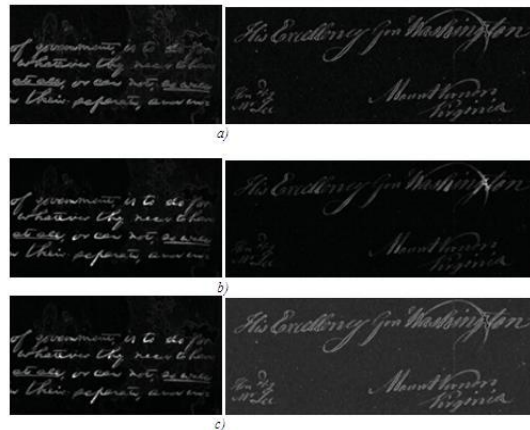 of government, is to do for
whatever they need to have
at all, or can not, so well
their separate, and
His Excellency Gen Washington
Mount Vernon
Mr Lee
Virginia
a)
of government, is to do for
whatever they need to have
at all, or can not, so well
their separate, and
His Excellency Gen Washington
Mount Vernon
Mr Lee
Virginia
b)
of government, is to do for
whatever they need to have
at all, or can not, so well
their separate, and
His Excellency Gen Washington
Mount Vernon
Mr Lee
Virginia
c)